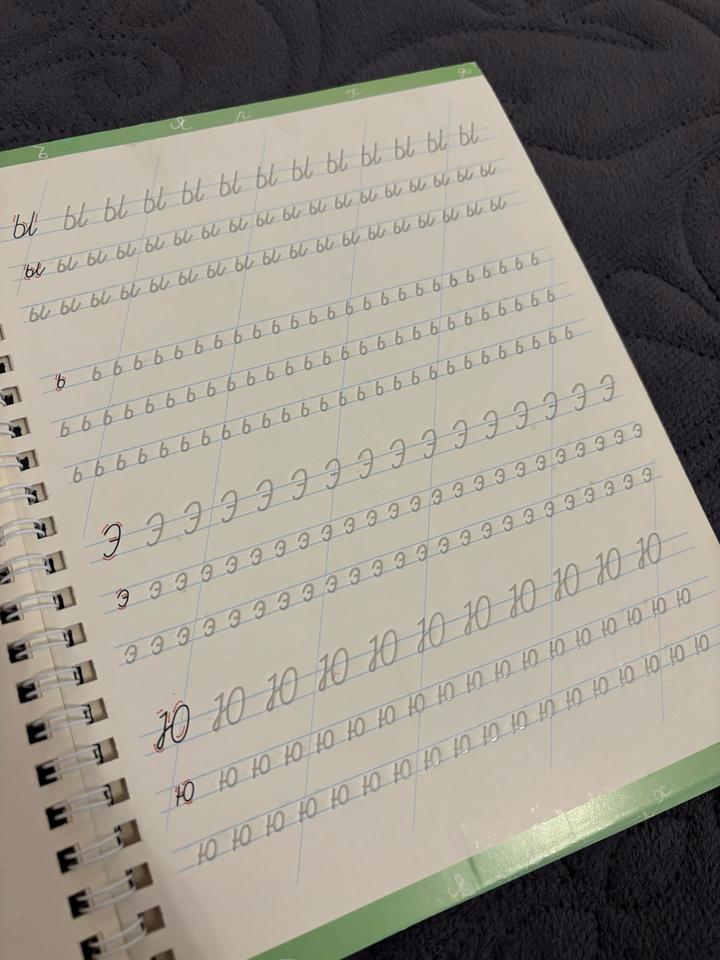 Ы Ы Ы Ы Ы Ы Ы Ы Ы Ы Ы Ы Ы
ы ы ы ы ы ы ы ы ы ы ы ы ы ы ы ы ы ы
ы ы ы ы ы ы ы ы ы ы ы ы ы ы ы ы ы ы
ь ь ь ь ь ь ь ь ь ь ь ь ь ь ь ь ь ь ь ь ь ь ь ь ь ь
ь ь ь ь ь ь ь ь ь ь ь ь ь ь ь ь ь ь ь ь ь ь ь ь ь ь ь
ь ь ь ь ь ь ь ь ь ь ь ь ь ь ь ь ь ь ь ь ь ь ь ь ь ь ь
Э Э Э Э Э Э Э Э Э Э Э Э Э Э Э Э
э э э э э э э э э э э э э э э э э э э э э э э э
э э э э э э э э э э э э э э э э э э э э э э э э
Ю Ю Ю Ю Ю Ю Ю Ю Ю Ю Ю
ю ю ю ю ю ю ю ю ю ю ю ю ю ю ю ю ю ю
ю ю ю ю ю ю ю ю ю ю ю ю ю ю ю ю ю ю